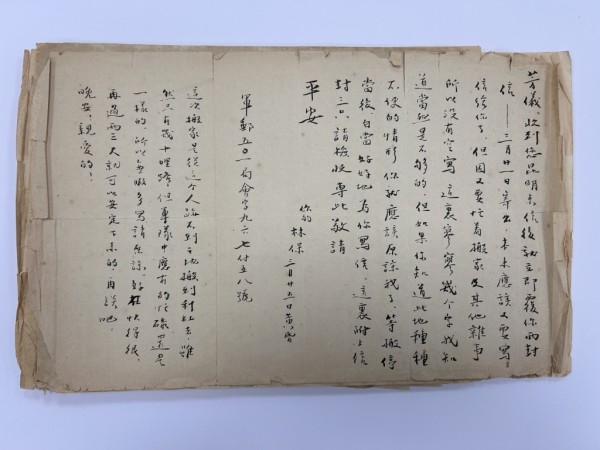 芳儀：收到您昆明來信後就立即覆你兩封
信——三月廿一日寄出，本來應該又要寫
信給你了，但因又要忙着搬家及其他雜事
所以沒有空寫，這裏寥寥幾个字我知
道當然是不够的，但如果你知道此地種種
不便的情形你就應該原諒我了，等搬停
當後，自當好好地為你寫信，這裏附上信
封三只，請檢收專此敬請
平安
你的林保
三月廿五日黃昏
軍郵五〇一局會字九六七付五八號
這次搬家是從這个人跡不到之地搬到村庄去，雖
然只有幾十哩路，但軍隊中應有的忙碌還是
一樣的，所以無暇多寫請原諒。好在快得很，
再過兩三天就可以安定下來的，再談吧。
晚安，親愛的！